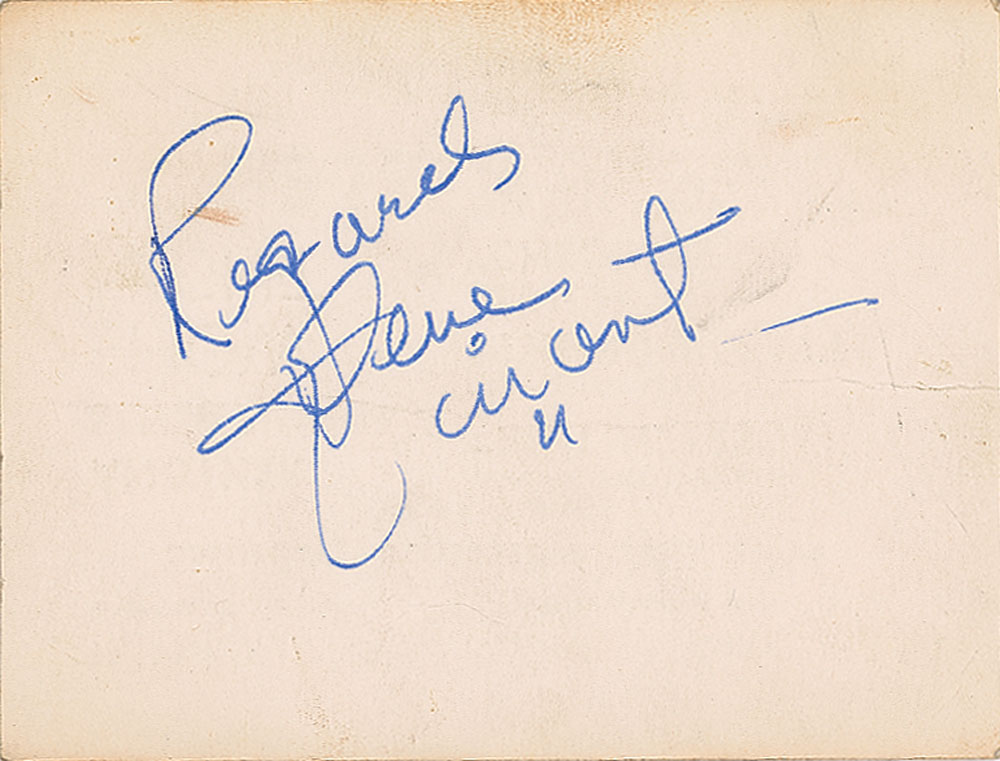 Regards
Gene
Vincent